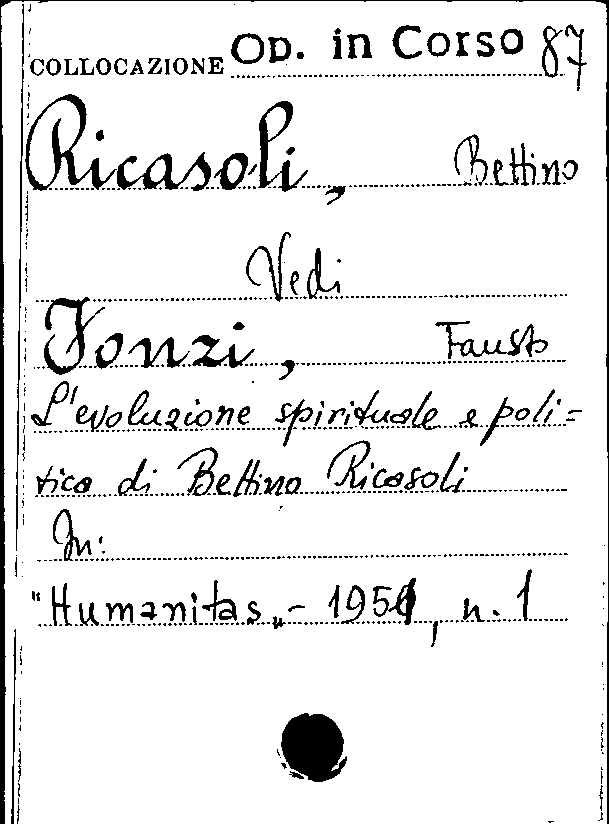 COLLOCAZIONE Op. in Corso 87
Ricasoli, Bettino
Vedi
Fonzi, Fausto
L'evoluzione spirituale e poli=
tica di Bettino Ricasoli
In:
"Humanitas„ - 1951, n. 1